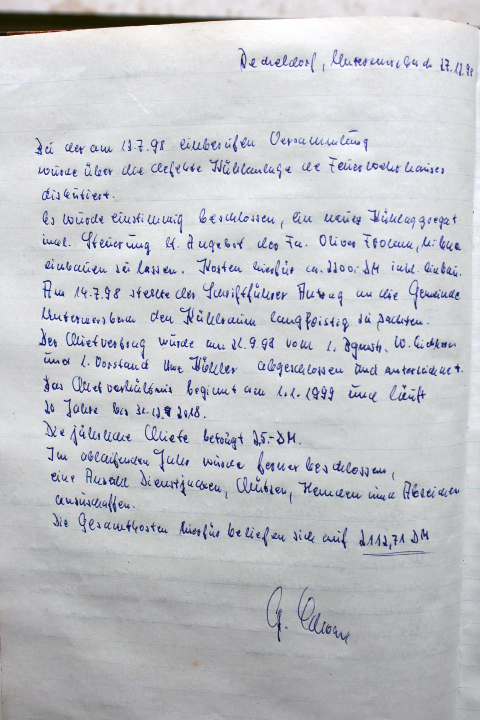 Decheldorf, Untermerzbach 27.12.98
Bei der am 13.7.98 einberufen Versammlung
wurde über die defekte Kühlanlage de Feuerwehrhauses
diskutiert.
Es wurde einstimmig beschlossen, ein neues Kühlaggregat
inkl. Steuerung lt. Angebot der Fa. Oliver
einbauen zu lassen. Kosten hierfür ca. 2200.- DM inkl. Einbau.
Am 14.7.98 stellte der Schriftführer Antrag an die Gemeinde
Untermerzbach den Kühlraum langfristig zu pachten.
Der Mietvertrag wurde am 21.9.98 vom 1. Bgmstr. W.
und 1. Vorstand Uwe Köhler abgeschlossen und unterzeichnet.
Das Mietverhältnis beginnt am 1.1.1999 und läuft
20 Jahre bis 31.12.2018.
Die jährliche Miete beträgt 25.- DM.
Im ablaufenden Jahr wurde ferner beschlossen,
eine Anzahl Dienstjacken, Mützen, Hemden und Abzeichen
anzuschaffen.
Die Gesamtkosten hierfür beliefen sich auf 2112,71 DM
G.